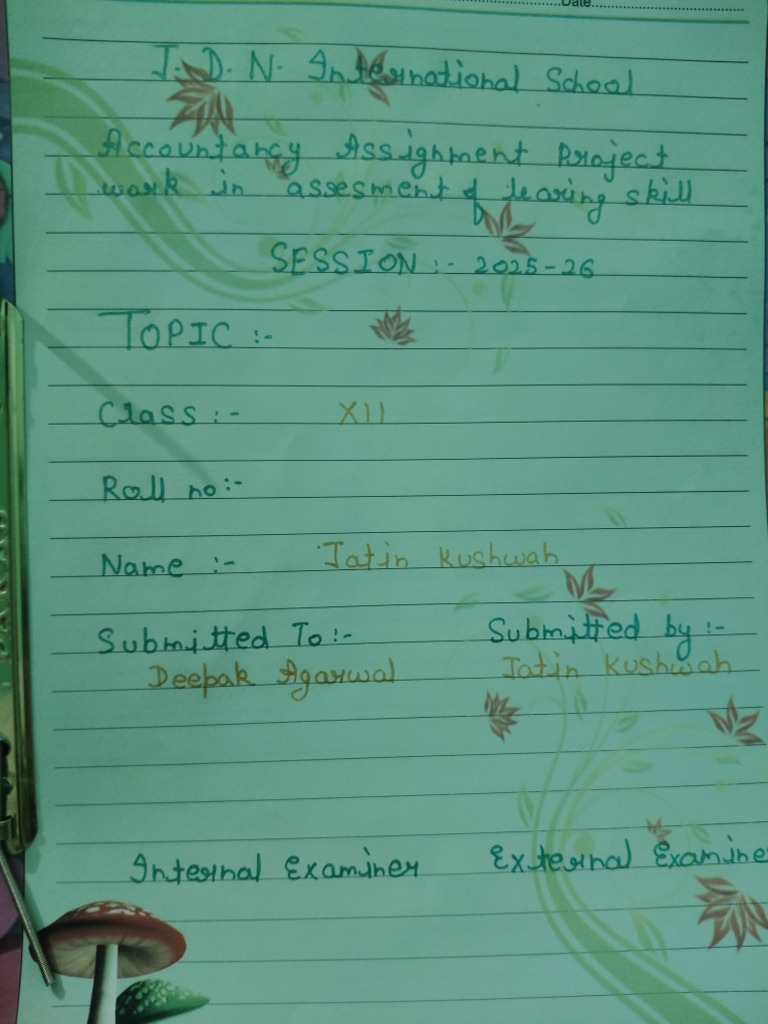 Date
J. D. N. International School
Accountancy Assignment Project
work in assesment of learing skill
SESSION :- 2025-26
TOPIC :-
Class :- XII
Roll no:-
Name :- Jatin Kushwah
Submitted To :- Submitted by :-
Deepak Agarwal Jatin Kushwah
Internal Examiner External Examine